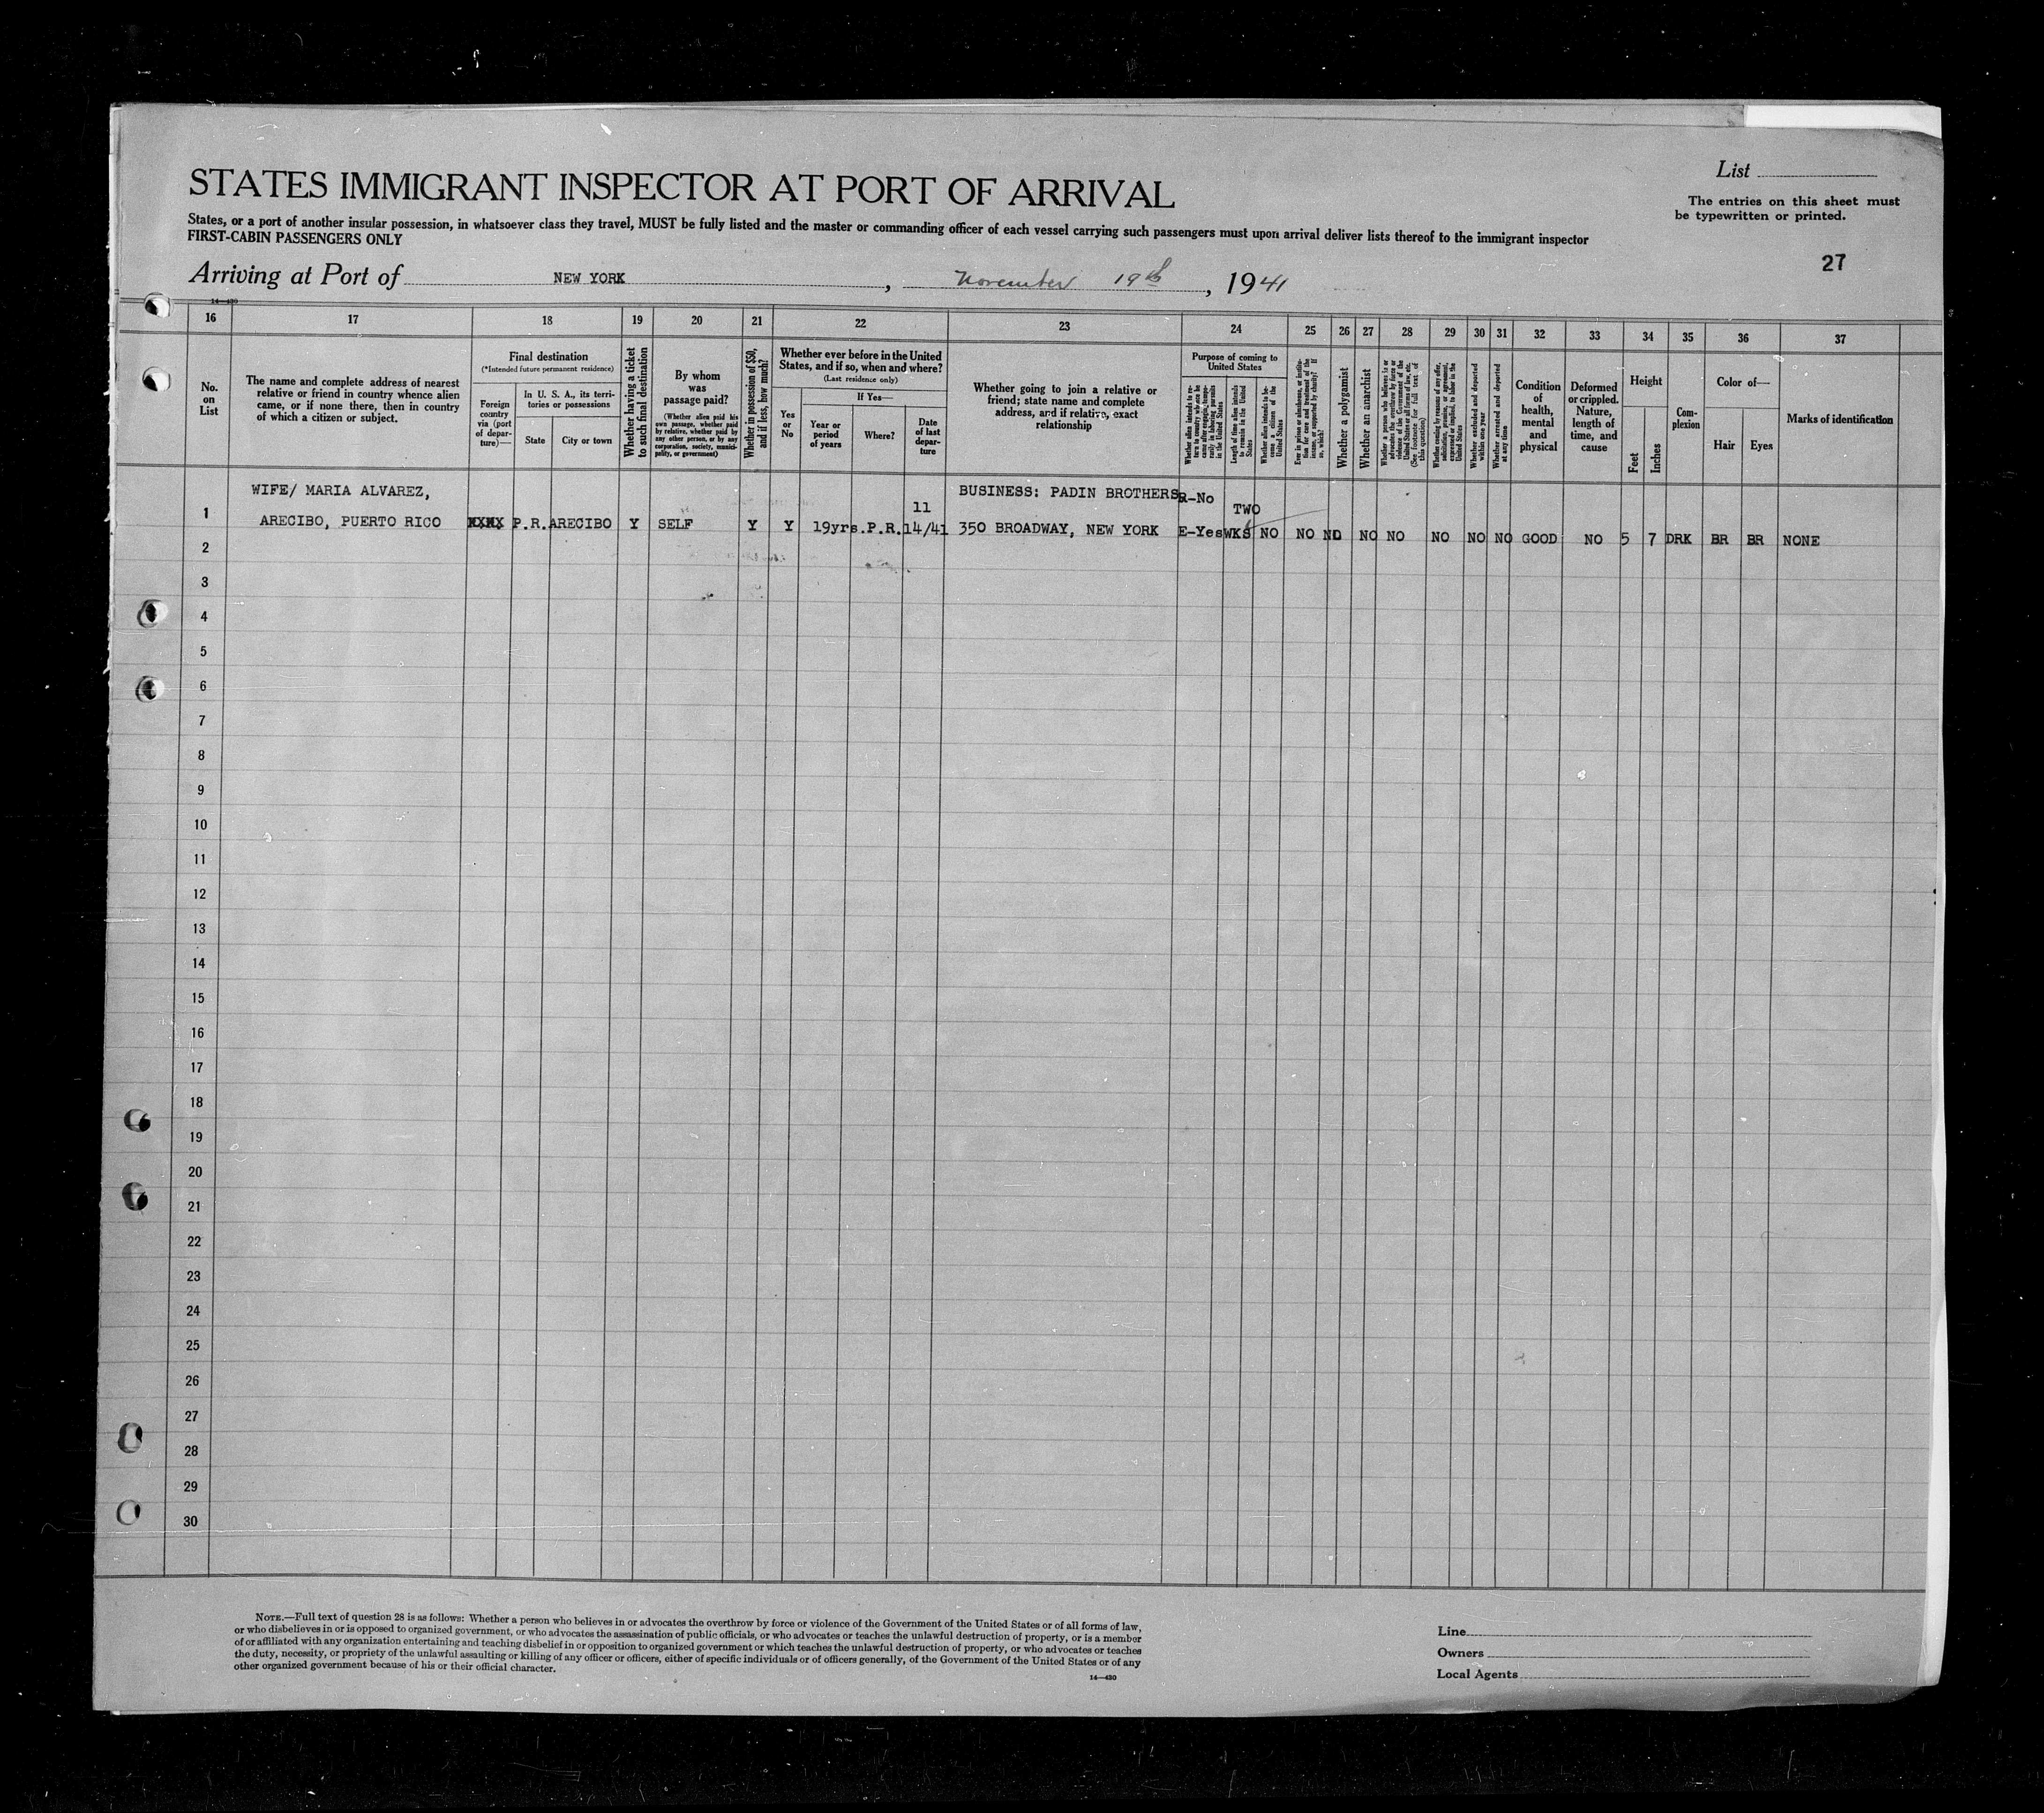 STATES IMMIGRANT INSPECTOR AT PORT OF ARRIVAL
List
The entries on this sheet must
be typewritten or printed.
States, or a port of another insular possession, in whatsoever class they travel, MUST be fully listed and the master or commanding officer of each vessel carrying such passengers must upon arrival deliver lists thereof to the immigrant inspector
FIRST-CABIN PASSENGERS ONLY
27
Arriving at Port of NEW YORK, November 19th, 1941
14—430
16 17 18 19 20 21 22 23 24 25 26 27 28 29 30 31 32 33 34 35 36 37
No.
on
List
The name and complete address of nearest
relative or friend in country whence alien
came, or if none there, then in country
of which a citizen or subject.
Final destination
(*Intended future permanent residence)
Foreign
country
via (port
of depar-
ture)—
In U. S. A., its terri-
tories or possessions
State
City or town
Whether having a ticket
to such final destination
By whom
was
passage paid?
(Whether alien paid his
own passage, whether paid
by relative, whether paid by
any other person, or by any
corporation, society, munici-
pality, or government)
Whether in possession of $50,
and if less, how much?
Whether ever before in the United
States, and if so, when and where?
(Last residence only)
Yes
or
No
If Yes—
Year or
period
of years
Where?
Date
of last
depar-
ture
Whether going to join a relative or
friend; state name and complete
address, and if relative, exact
relationship
Purpose of coming to
United States
Whether alien intends to re-
turn to country whence he
came after engaging tempo-
rarily in laboring pursuits
in the United States
Length of time alien intends
to remain in the United
States
Whether alien intends to be-
come a citizen of the
United States
Ever in prison or almshouse, or institu-
tion for care and treatment of the
insane, or supported by charity? If
so, which?
Whether a polygamist
Whether an anarchist
Whether a person who believes in or
advocates the overthrow by force or
violence of the Government of the
United States or all forms of law, etc.
(See footnote for full text of
this question)
Whether coming by reason of any offer,
solicitation, promise, or agreement,
expressed or implied, to labor in the
United States
Whether excluded and deported
within one year
Whether arrested and deported
at any time
Condition
of
health,
mental
and
physical
Deformed
or crippled.
Nature,
length of
time, and
cause
Height
Feet
Inches
Com-
plexion
Color of—
Hair
Eyes
Marks of identification
WIFE/ MARIA ALVAREZ, 11 BUSINESS: PADIN BROTHERS, R-No TWO
1 ARECIBO, PUERTO RICO P.R. ARECIBO Y SELF Y Y 19yrs. P.R. 14/41 350 BROADWAY, NEW YORK E-Yes WKS NO NO NO NO NO NO NO NO GOOD NO 5 7 DRK BR BR NONE
2
3
4
5
6
7
8
9
10
11
12
13
14
15
16
17
18
19
20
21
22
23
24
25
26
27
28
29
30
NOTE.—Full text of question 28 is as follows: Whether a person who believes in or advocates the overthrow by force or violence of the Government of the United States or of all forms of law,
or who disbelieves in or is opposed to organized government, or who advocates the assassination of public officials, or who advocates or teaches the unlawful destruction of property, or is a member
of or affiliated with any organization entertaining and teaching disbelief in or opposition to organized government or which teaches the unlawful destruction of property, or who advocates or teaches
the duty, necessity, or propriety of the unlawful assaulting or killing of any officer or officers, either of specific individuals or of officers generally, of the Government of the United States or of any
other organized government because of his or their official character.
14—430
Line
Owners
Local Agents